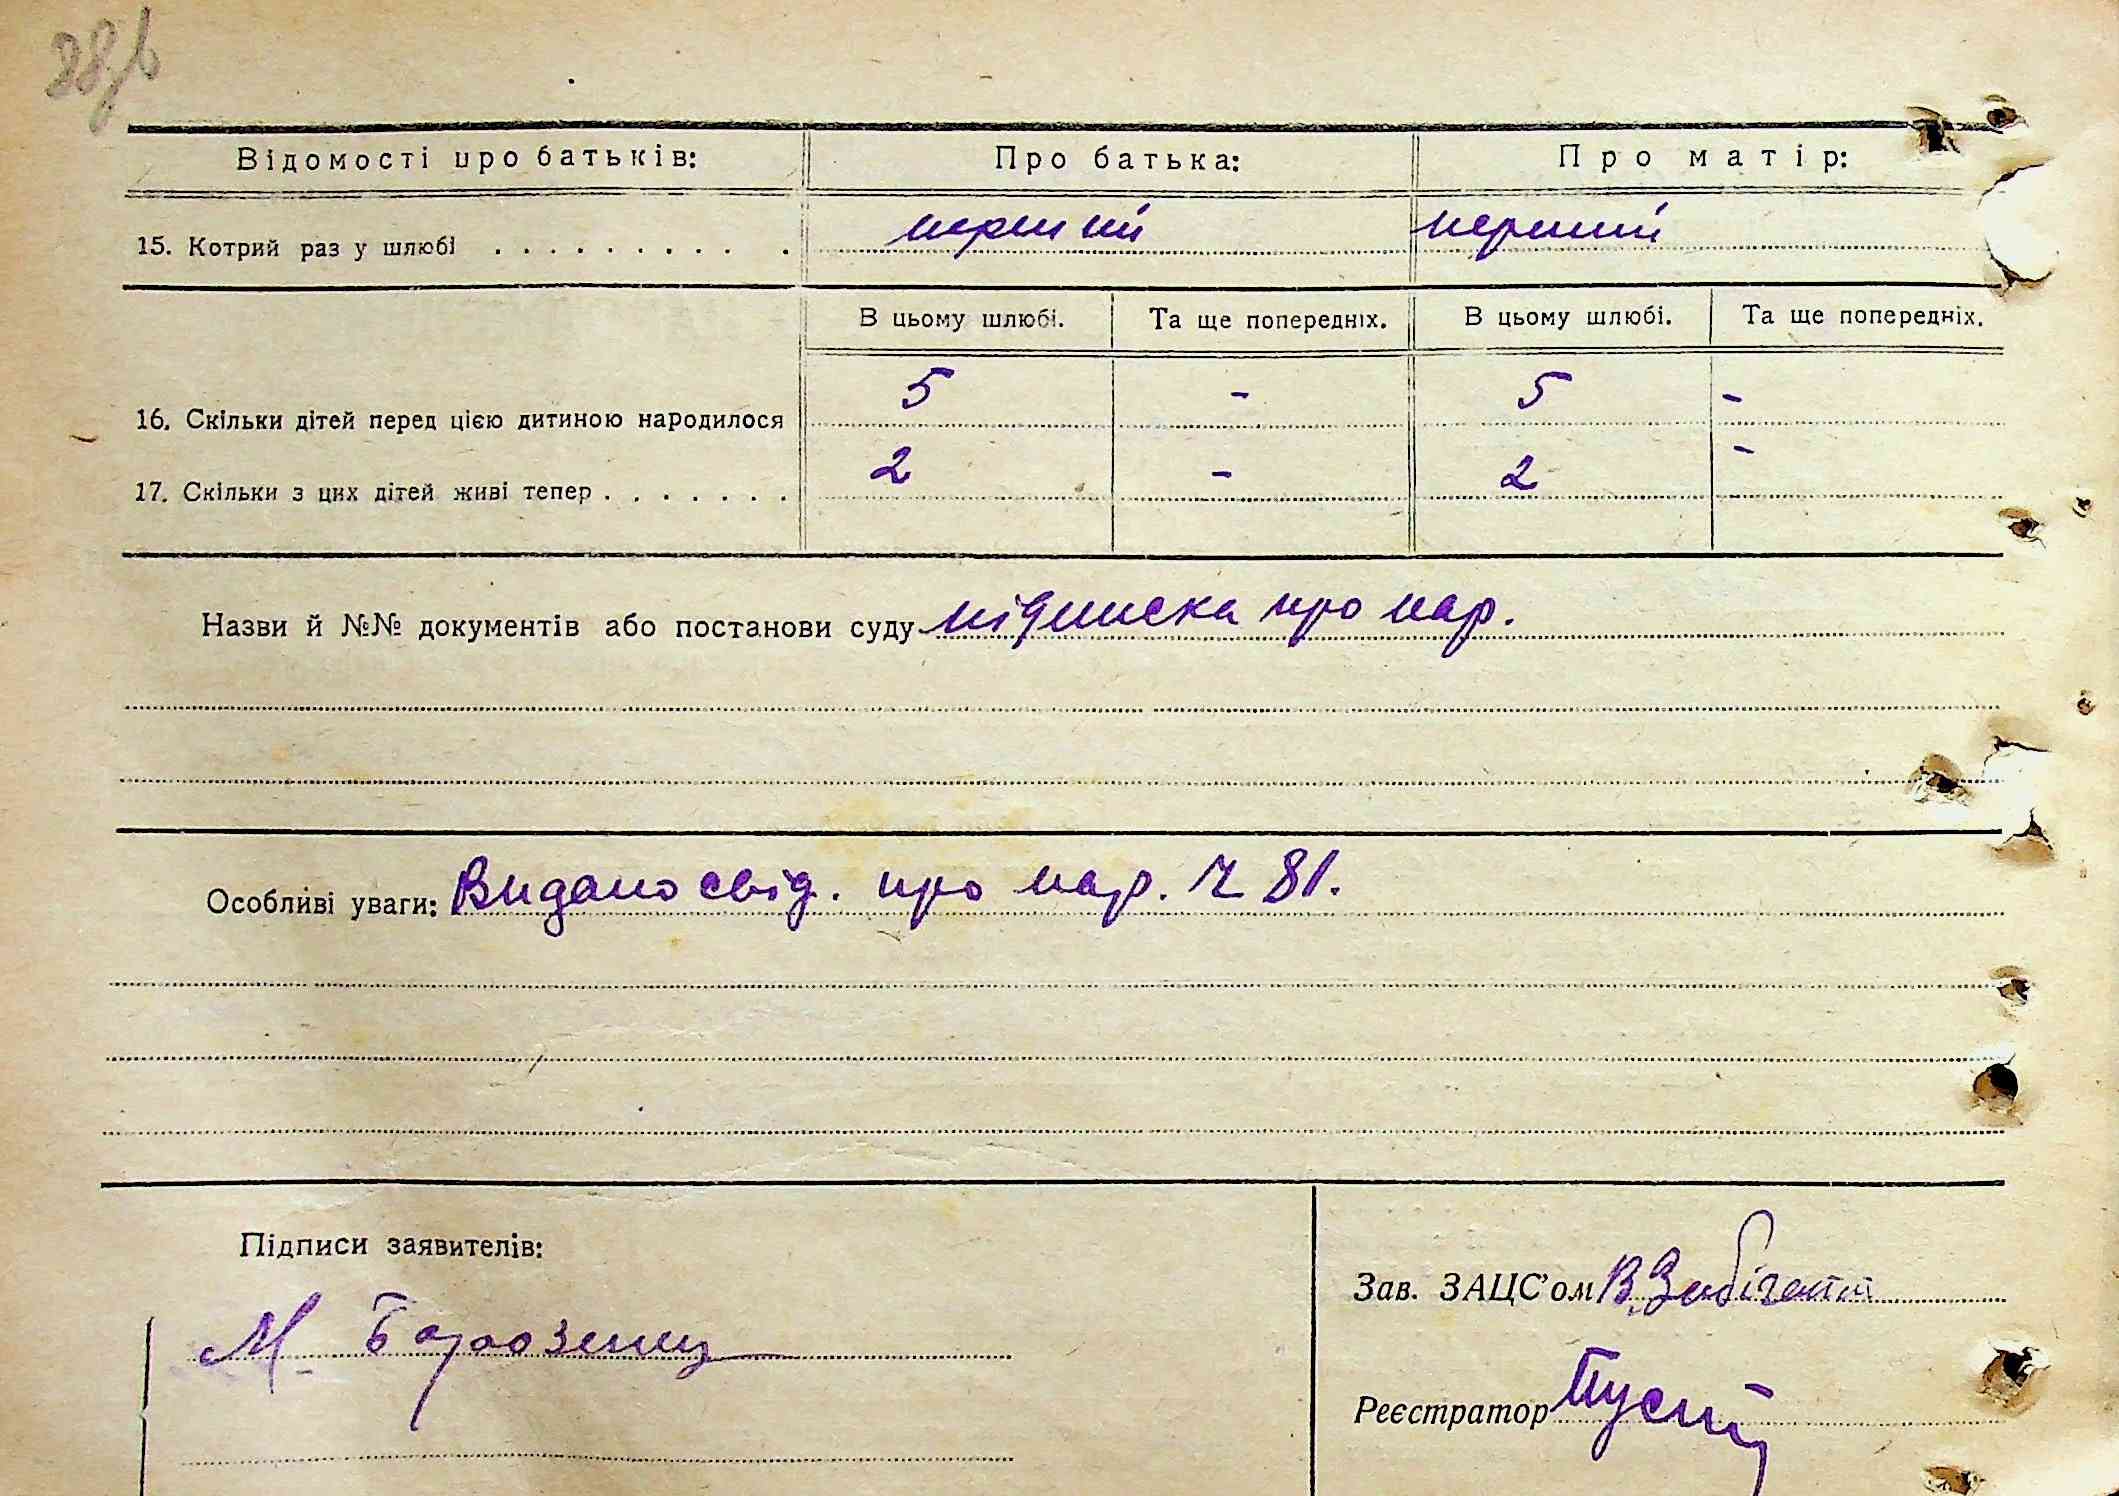 88зв
Відомості про батьків: Про батька: Про матір:
15. Котрий раз у шлюбі . . . . . . . . . . перший перший
В цьому шлюбі. Та ще попередніх. В цьому шлюбі. Та ще попередніх.
16. Скільки дітей перед цією дитиною народилося 5 - 5 -
17. Скільки з цих дітей живі тепер . . . . . . . 2 - 2 -
Назви й №№ документів або постанови суду підписка про нар.
Особливі уваги: Видано свід. про нар. Ч 81.
Підписи заявителів:
Зав. ЗАЦС'ом В.
М.
Реєстратор